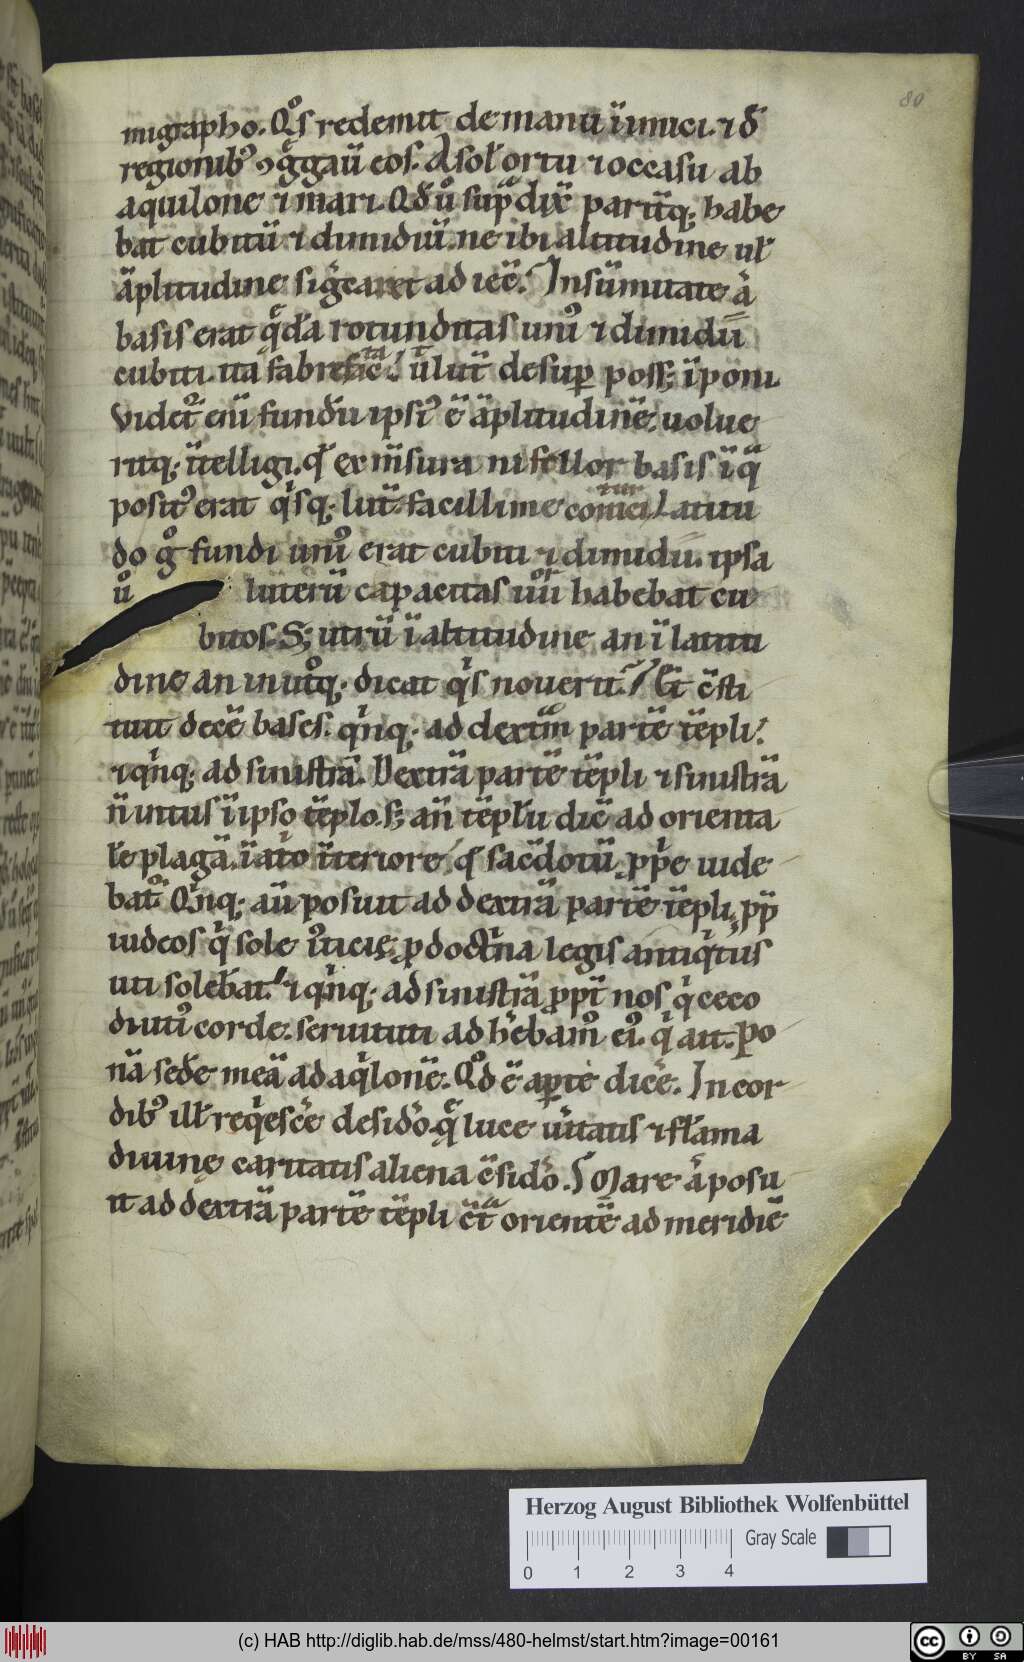 80
migrapho. Qͦs redemit de manu inimici. ⁊ đ
regionibꝰ ꝯg̃gauͥ eos. A solͥ ortu ⁊ occasu ab
aquilone ⁊ mari. Qđ ů sup̃dix̃ paritq; habe
bat cubitũ ⁊ dimidiũ. ne ibi altitudine ul̃
ãplitudine sig̃caret adiec̃. In sũmitate ã
basis erat q̃dã rotunditas unꝰ ⁊ dimidii
cubiti. ita fabrefac̃ ut lut̃ desup̱ poss; ĩponi.
Videt᷑ eni fundũ ipsiꝰ ẽ ãplitudinẽ. uolue
ritq; ĩtelligi. q̃ ex m̃sura
positꝰ erat q̃sq; lut̃ facillime conici Latitu
do g̊ fundi unꝰ erat cubiti ⁊ dimidii. ipsa
ů luterũ capacitas habebat cu
bitos. S; utrũ ĩ altitudine an ĩ latitu
dine an in utq; dicat q̃s nouerit. Et c̃sti
tuit decẽ bases. qnq; ad dextrã partẽ tẽpli.
⁊ qnq; ad sinistrã. Dextrã partẽ tẽpli ⁊ sinistrã
ñ intus ĩ ipso tẽplo. s; añ tẽplũ dic̃ ad orienta
lẽ plagã. ĩ at̊o ĩteriore q̃ sac̃dotũ ꝓp̃e uide
bat᷑. Qnq; aũ posuit ad dextrã partẽ tẽpli. ꝓp̃
iudeos q̃ sole iticię ꝓ doct̃na legis antiq̃tus
uti solebat. ⁊ qnq; ad sinistrã ꝓpt̃ nos q̃ ceco
diutiꝰ corde. seruituti adhẽbamꝰ eiꝰ. q̃ ait. Po
nã sedẽ meã ad aq̃lonẽ. Qđ ẽ ap̱te dic̃e. In cor
dibꝰ illͥ reqͥesc̃e desid̃o. q̃ luce ũitatis ⁊ flãma
diuinę caritatis aliena c̃sid̃o. Mare ã posu
it ad dextrã partẽ tẽpli c̃t̃ orientẽ ad meridiẽ
Herzog August Bibliothek Wolfenbüttel
Gray Scale
0 1 2 3 4
(c) HAB http://diglib.hab.de/mss/480-helmst/start.htm?image=00161
cc BY SA